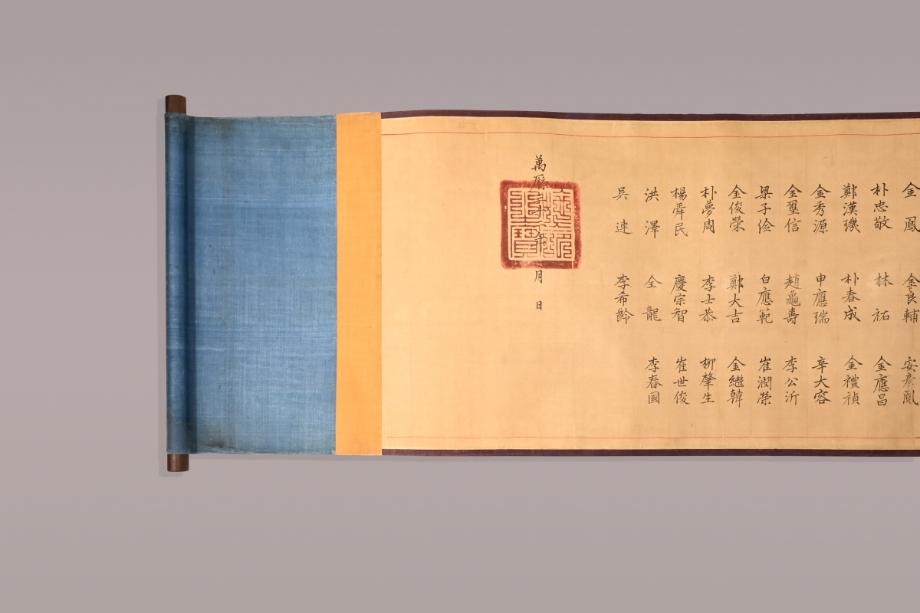 金鳳 金良輔 安彥鳳
朴忠敬 林祐 金應昌
鄭漢璣 朴春成 金禮禎
金秀源 申應瑞 辛大容
金璽信 趙龜壽 李公沂
梁子俭 白應範 崔潤榮
金俊榮 鄭大吉 金繼韓
朴夢周 李士恭 柳肇生
楊舜民 慶宗智 崔世俊
洪澤 全龍 李春國
吳連 李希齡
萬曆 年 月 日